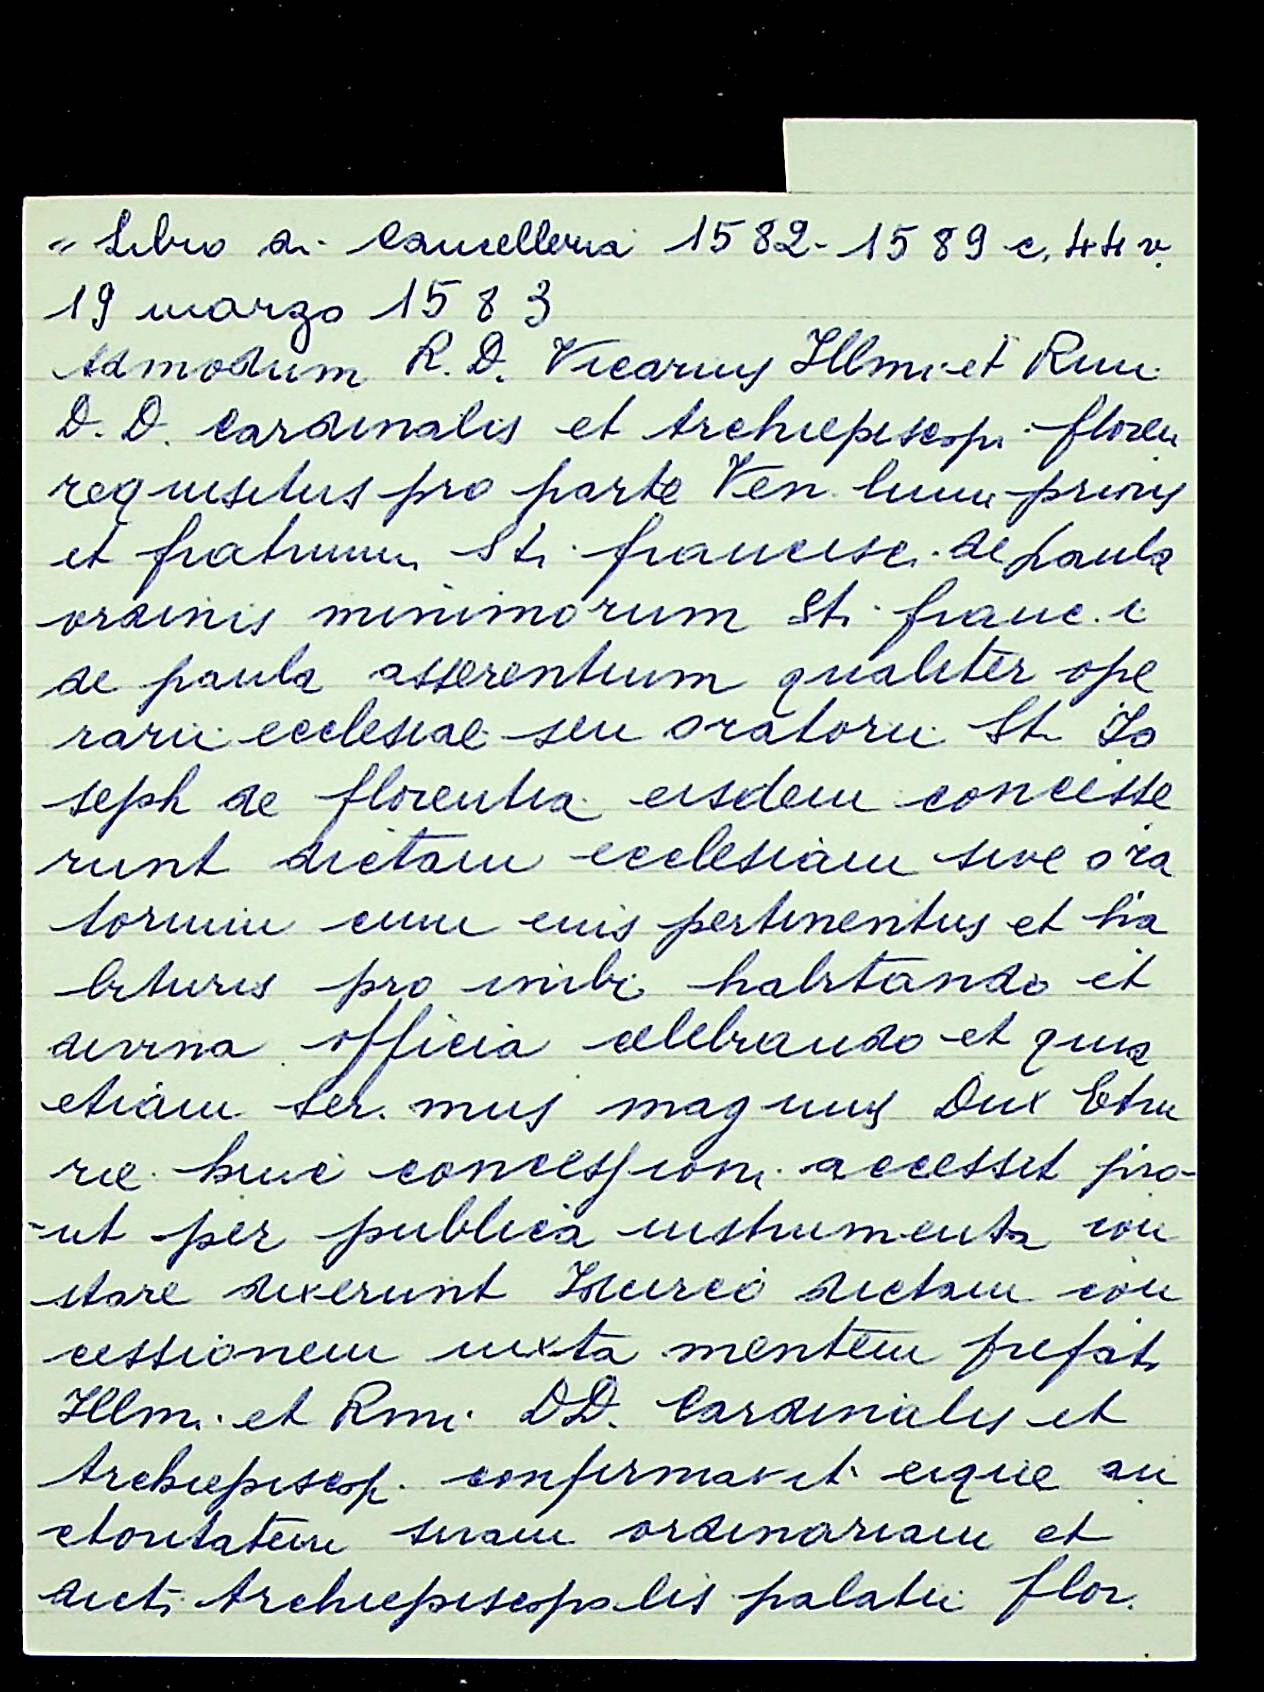 " Libro di Cancelleria 1582-1589 c. 44 v.
19 marzo 1583
Admodum R. D. Vicarius Illmi et Rmi
D. D. Cardinalis et Archiepiscopi floren
requisitus pro parte Ven. prioris
et fratrum Sti francisci de paula
ordinis minimorum Sti franc.i
de paula asserentium qualiter ope
rarii ecclesiae seu oratorii Sti Jo
seph de florentia eisdem concesse
runt dictam ecclesiam sive ora
torium cum eius pertinentiis et ha
bituris pro inibi habitando et
divina officia celebrando et quia
etiam Ser.mus magnus Dux Etru
rie huic concessioni accessit pro-
-ut per publica instrumenta con
stare dixerunt Idcirco dictam con
cessionem iuxta mentem prefati
Illmi et Rmi DD. Cardinalis et
Archiepiscopi confirmavit eique au
ctoritatem suam ordinariam et
dicti Archiepiscopalis palatii flor.